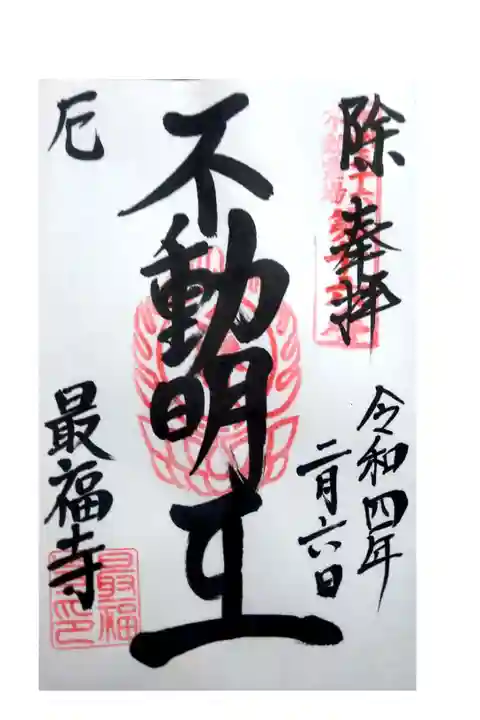 除 厄
奉拝
令和四年
二月六日
不動明王
最福寺
最福
寺印